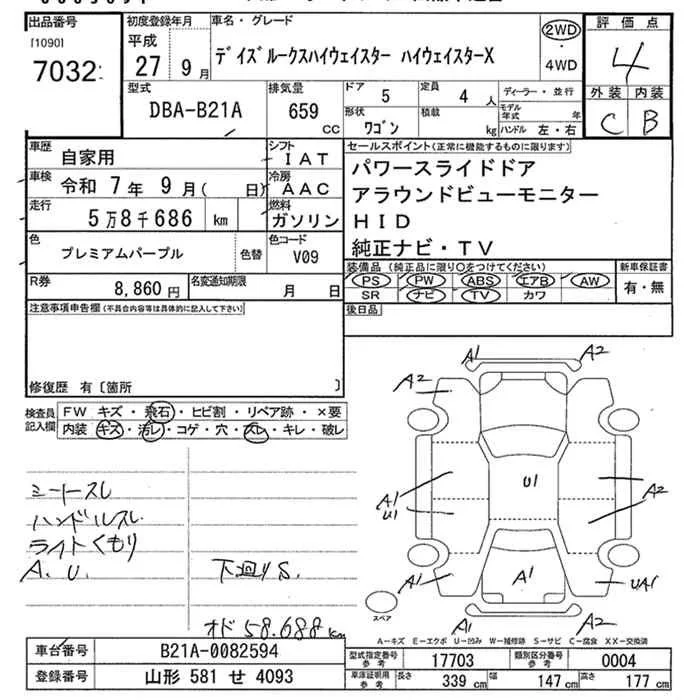 出品番号
[1090]
7032
初度登録年月
平成
27 9月
車名・グレード
デイズルークスハイウェイスター ハイウェイスターX
2WD
・
4WD
評価点
4
外装 内装
C B
型式
DBA-B21A
排気量
659
CC
ドア
5
定員
4 人
形状
ワゴン
積載
kg
ディーラー・並行
モデル年式 年
ハンドル 左・右
車歴
自家用
シフト
IAT
車検
令和 7年 9月( 日)
冷房
AAC
走行
5万8千686 km
燃料
ガソリン
色
プレミアムパープル
色替
色コード
V09
R券
8,860円
名変通知期限
月 日
セールスポイント(正常に機能するものに限ります)
パワースライドドア
アラウンドビューモニター
HID
純正ナビ・TV
装備品 (純正品に限り○をつけてください)
PS PW ABS エアB AW
SR ナビ TV カワ
新車保証書
有・無
後日品
注意事項申告欄(不具合内容等は具体的に記入して下さい)
修復歴 有〔箇所 〕
検査員
記入欄
FW キズ・飛石・ヒビ割・リペア跡・×要
内装 キズ・汚レ・コゲ・穴・スレ・キレ・破レ
シートスレ
ハンドルスレ
ライトくもり
A. U.
下廻りS.
オド58.688km
A1 A2
A2
A1
U1
U1
A2
A1
A1
UA1
A1 A2
スペア
A-キズ E-エクボ U-凹み W-補修跡 S-サビ C-腐食 XX-交換済
車台番号
B21A-0082594
登録番号
山形 581 せ 4093
型式指定番号
参考
17703
類別区分番号
参考
0004
車庫証明用
参考
長さ 339 cm 幅 147 cm 高さ 177 cm